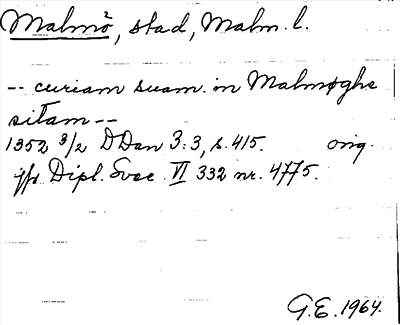 Malmö, stad, Malm. l.
-- curiam suam in Malmøghe
sitam --
1352 3/2 DDan 3:3, s. 415. orig.
jfr Dipl. Svec. VI 332 nr. 4775.
G.E. 1964.